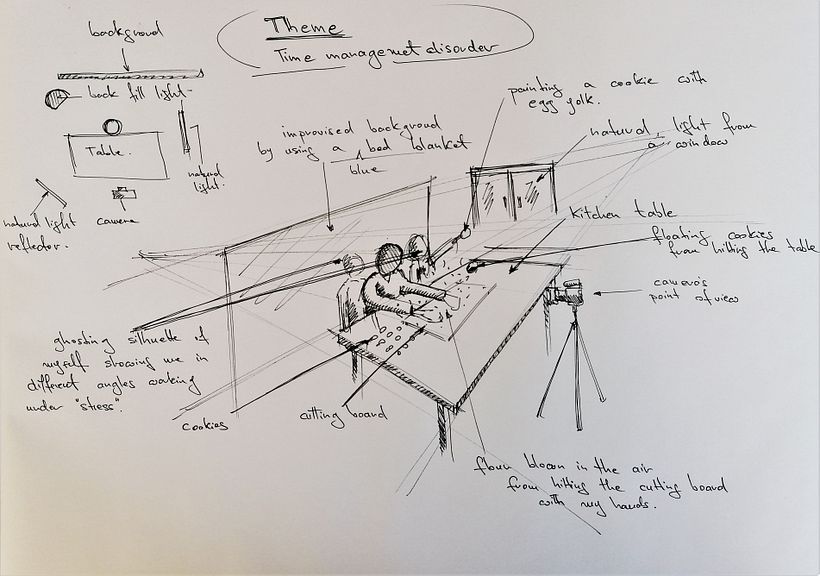 Theme
Time managemet disorder
backgroud
back fill light
Table.
natural
light.
natural light
reflector.
camera
improvised backgroud
by using a bed blanket
blue
painting a cookie with
egg yolk.
natural light from
a window
Kitchen table
floating cookies
from hitting the table
camera's
point of view
ghosting silhuette of
myself showing me in
different angles working
under "stress".
cookies
cutting board
flour blown in the air
from hitting the cutting board
with my hands.